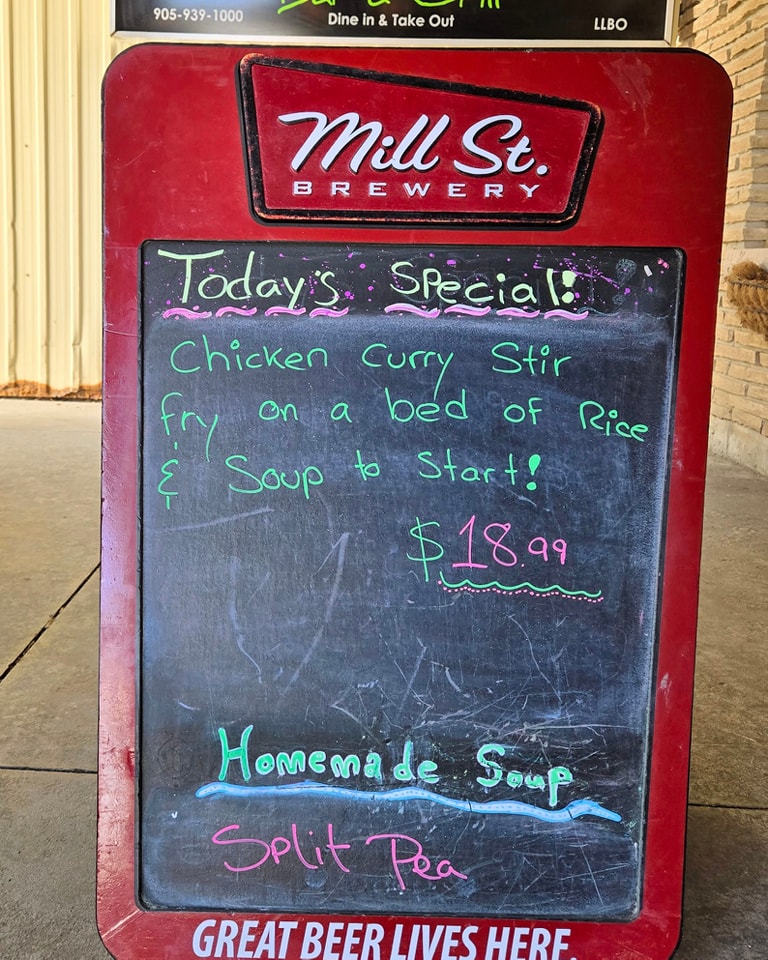 905-939-1000
Dine in & Take Out
LLBO
Mill St.
BREWERY
Today's Special!
Chicken Curry Stir
fry on a bed of Rice
& Soup to Start!
$18.99
Homemade Soup
Split Pea
GREAT BEER LIVES HERE.